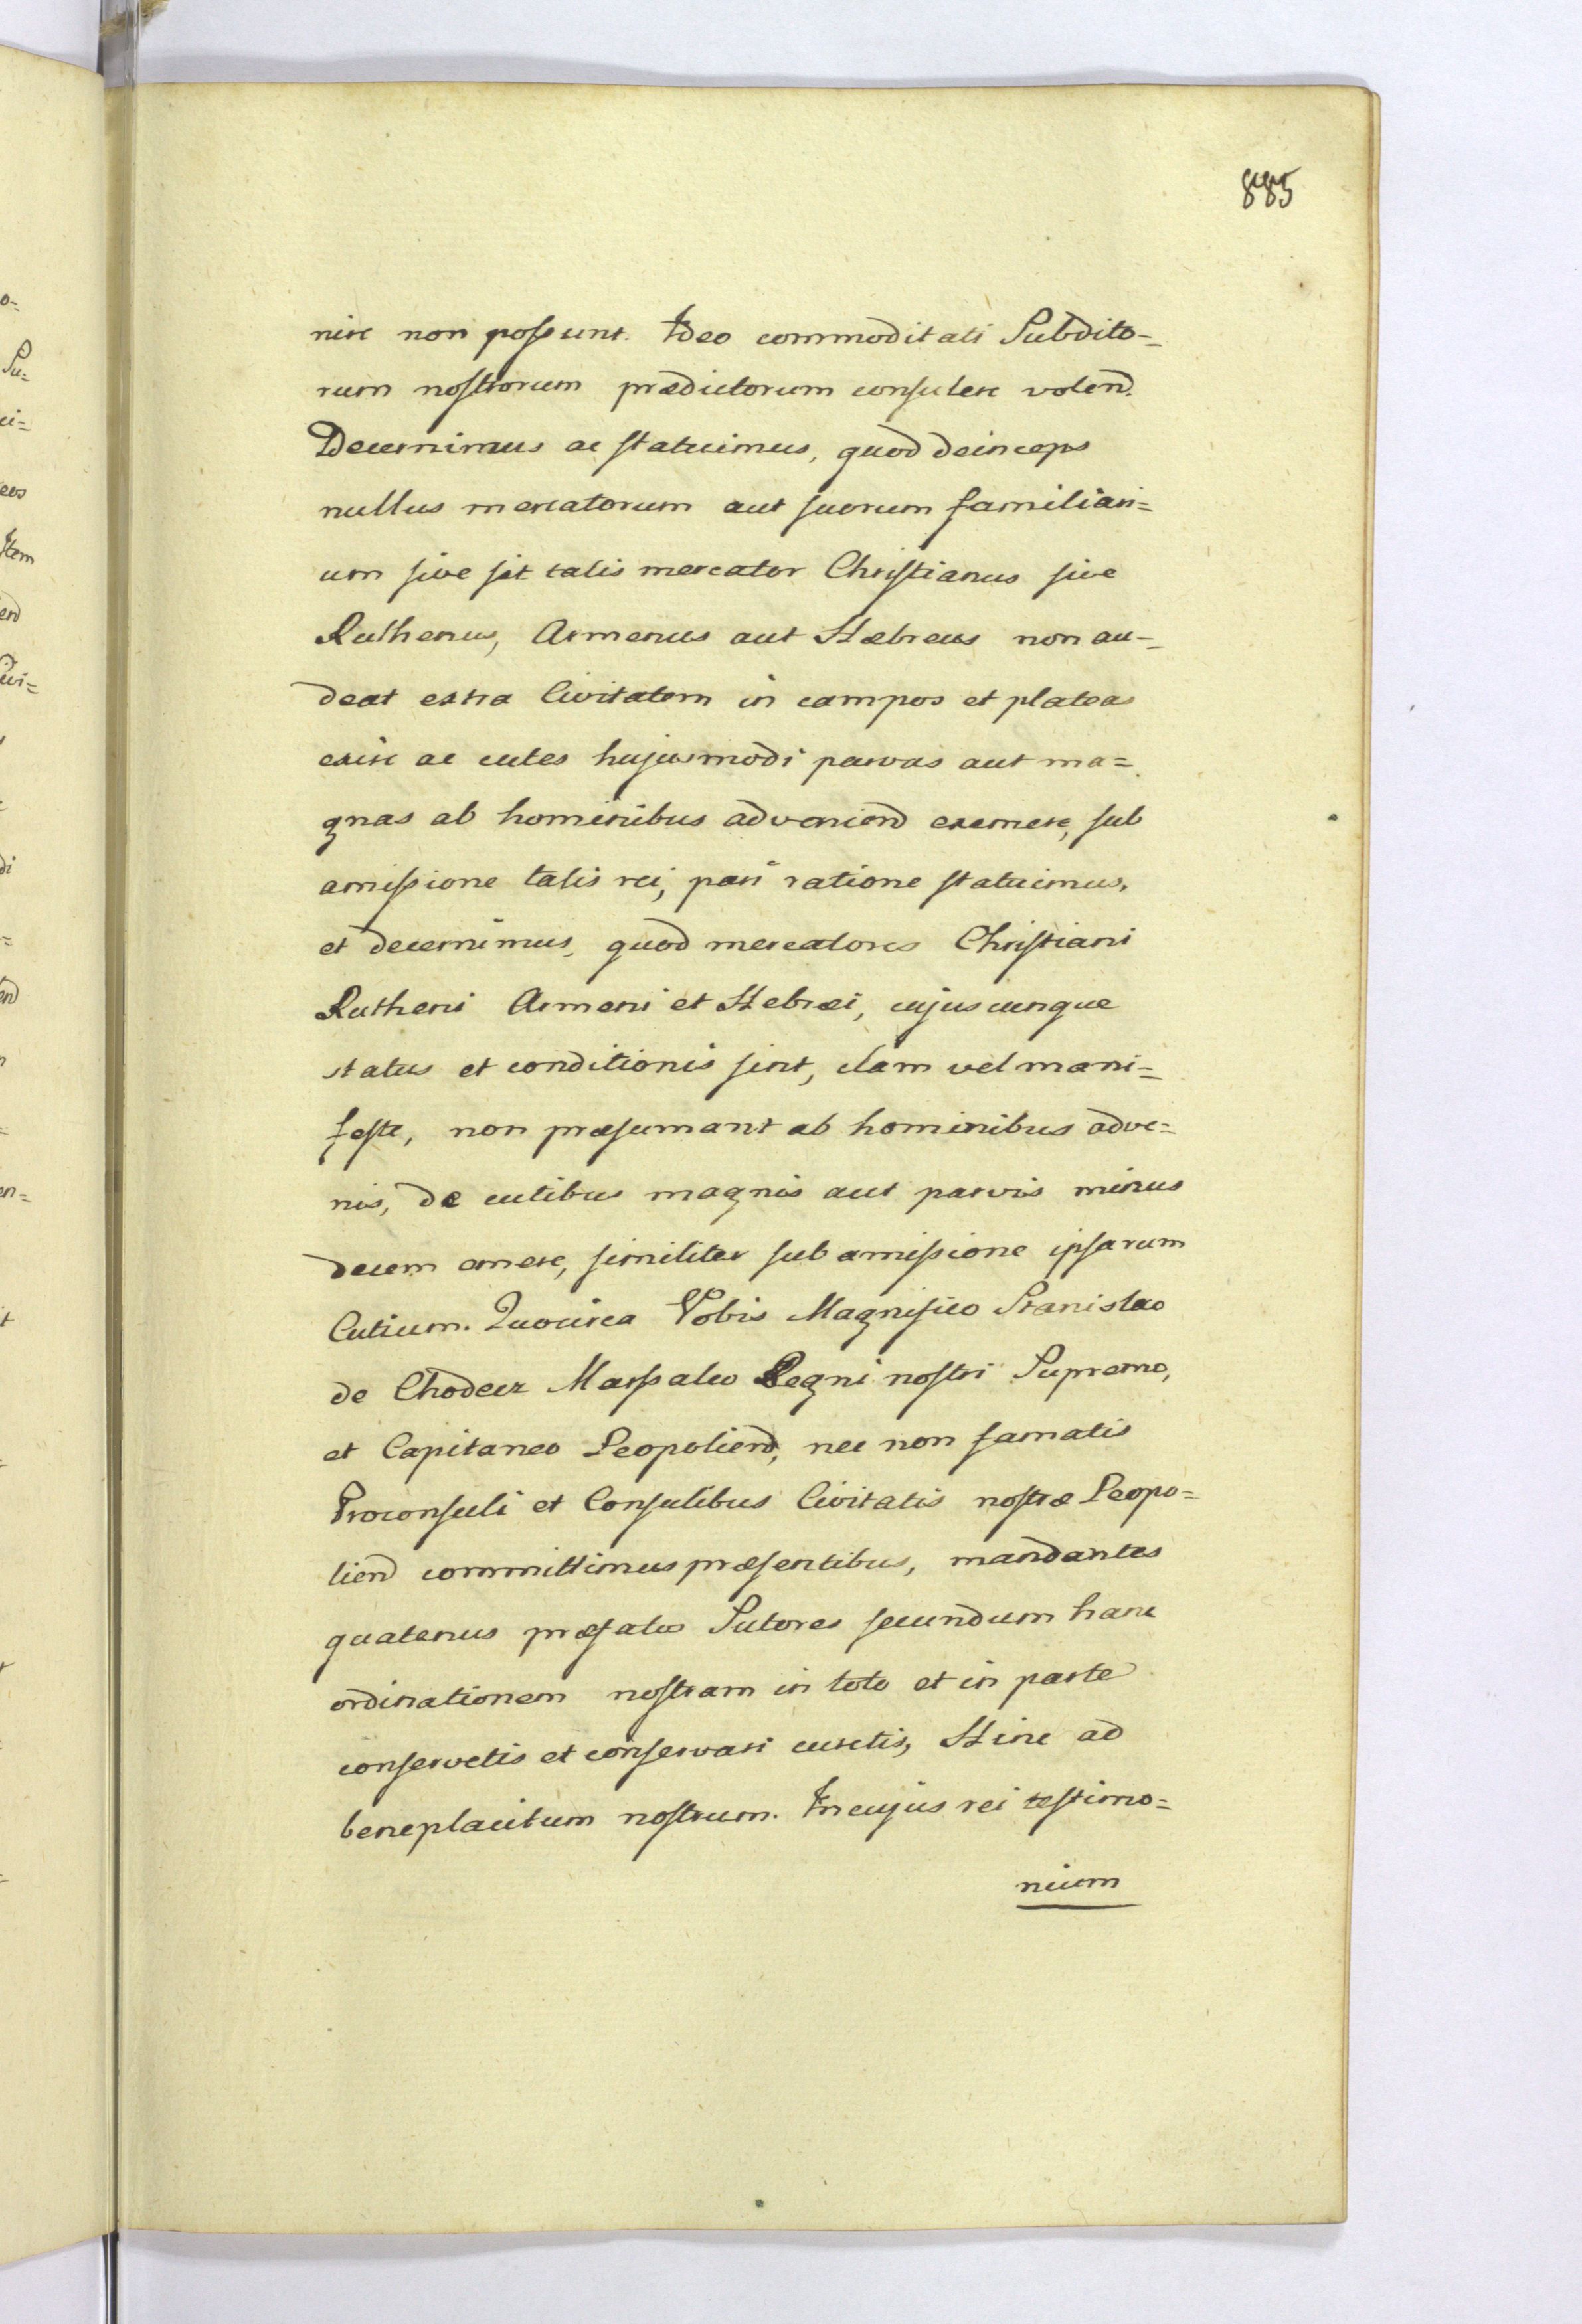 885
nire non possunt. Ideo commoditati Subdito-
rum nostrorum prædictorum consulere volend.
Decernimus ac statuimus, quod deinceps
nullus mercatorum aut suorum familiari=
um sive sit talis mercator Christianus sive
Ruthenus, Armenus aut Hæbreus non au-
deat extra Civitatem in campos et plateas
exire ac cutes hujusmodi parvas aut ma=
gnas ab hominibus adveniend exemere, sub
amissione talis rei, pari ratione statuimus,
et decernimus, quod mercatores Christiani
Rutheni Armeni et Hebræi, cujuscunque
status et conditionis sint, clam vel mani=
feste, non præsumant ab hominibus adve=
nis, de cutibus magnis aut parvis minus
decem emere, similiter sub amissione ipsarum
Cutium. Quocirca Vobis Magnifico Stanislao
de Chodecz Marsalco Regni nostri Supremo,
et Capitaneo Leopoliend, nec non famatis
Proconsuli et Consulibus Civitatis nostræ Leopo=
liend committimus præsentibus, mandantes
quatenus præfatos Sutores secundum hanc
ordinationem nostram in toto et in parte
conservetis et conservari curetis, Hinc ad
beneplacitum nostrum. In cujus rei testimo=
nium
o=
Su=
ci=
eos
Item
end